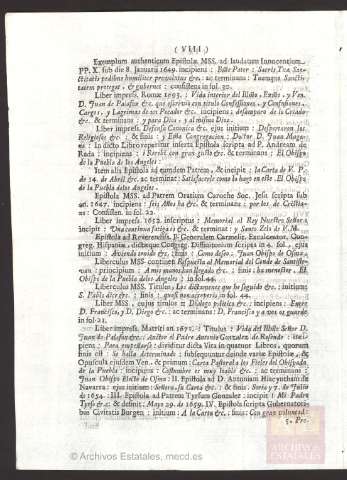 ( VIII )
Exemplum authenticum Epistolæ MSS. ad laudatum Innocentium
PP. X. sub die 8. Januarii 1649. incipiens : Bme Pater : Sacris Tuæ San-
ctitatis pedibus humiliter provolutus &c. ac terminans : Tuamque Sanctita-
tem protegat, & gubernet : consistens in fol. 30.
Liber impress. Romæ 1693. : Vida interior del Illmo, Exmo, y Ven.
D. Juan de Palafox &c. que escrivio con titulo Confessiones, y Confusiones,
Cargos, y Lagrimas de un Pecador &c. incipiens : despues de la Celada
&c. & terminans : y para Dios, y al mismo Dios.
Liber impress. Defensa Canonica &c. ejus initium : Desearon las
Religiones &c. : & finis : y Esta Congregacion : Doctor D. Juan Maga-
no : In dicto Libro reperitur inserta Epistola scripta ad P. Andream de
Rada : incipiens : Recebi con gran gusto &c. & terminans : El Obispo
de la Puebla de los Angeles :
Item alia Epistola ad eundem Patrem, & incipit : la Carta de V. P.
de 24. de Abril &c. ac terminat : Satisfacerle como lo hago en esto El Obispo
de la Puebla de los Angeles.
Epistola MSS. ad Patrem Oratium Caroche Soc. Jesu scripta sub
an. 1647. incipiens : seis Años ha &c, & terminans : por los de Christia-
no : Consistens in fol. 22.
Liber impress. 1652. inscriptus : Memorial al Rey Nuestro Señor,
incipit : Una continua fatiga es &c. & terminat : y Santo Zelo de V. M.
Epistola ad Reverendis. P. Generalem Carmelit. Excalceator. Con-
greg. Hispaniæ, dictæque Congreg. Diffinitorium scripta in 4. fol., ejus
initium : Aviendo venido &c, finis : Como deseo, Juan Obispo de Osma.
Liberculus MSS. continens Respuesta al Memorial del Conde de Santiste-
van : principium : A mis manos ban llegado &c. ; finis : ha menester, El
Obispo de la Puebla delos Angeles : in fol. 44.
Liberculus MSS. Titulus, Los dictamenes que se siguen &c. : initium :
S. Pablo dice &c. ; finis : quos non acceperis in fol. 44.
Liber MSS., cujus titulus : Dialogo politico &c. : incipiens : Entre
D. Francisco, y D. Diego &c. : ac terminans : D. Francisco y à vos os guarde
in fol. 21.
Liber impress. Matriti an 1671. : Titulus : Vida del Illmo Señor D.
Juan de Palafox &c. : Auctor el Padre Antonio Gonzalez de Rosende : inci-
piens : Para engrossar : dividitur dicta Vita in quatuor Libros, quorum
finis est : la halla determinada : subsequuntur deinde variæ Epistolæ, &
Opuscula ejusdem Ven. & primum : Carta Pastoral a los Fieles del Obispado
de la Puebla : incipiens : Costumbre es muy loable &c. ; ac terminans :
Juan Obispo Electo de Osma : II. Epistola ad D. Antonium Hiacynthum de
Navarra : ejus initium : Señora, su Carta &c. : & finis : Soria y 7. de Julio
de 1654. : III. Epistola ad Patrem Tyrsum Gonzalez : incipit : Mi Padre
Tyrso &c. & desinit : Mayo 29. de 1659. IV. Epistola scripta Gubernatori-
bus Civitatis Burgen : initium : A la Carta &c. ; finis : Con gran puntual-
3. Pro-
ARCHIVOS
ESTATALES
© Archivos Estatales, mecd.es